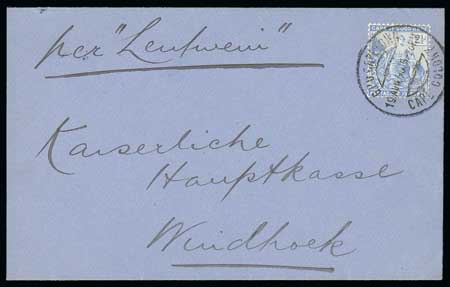 per "Leutwein"
Kaiserliche
Hauptkasse
Windhoek
CAPE COLONY